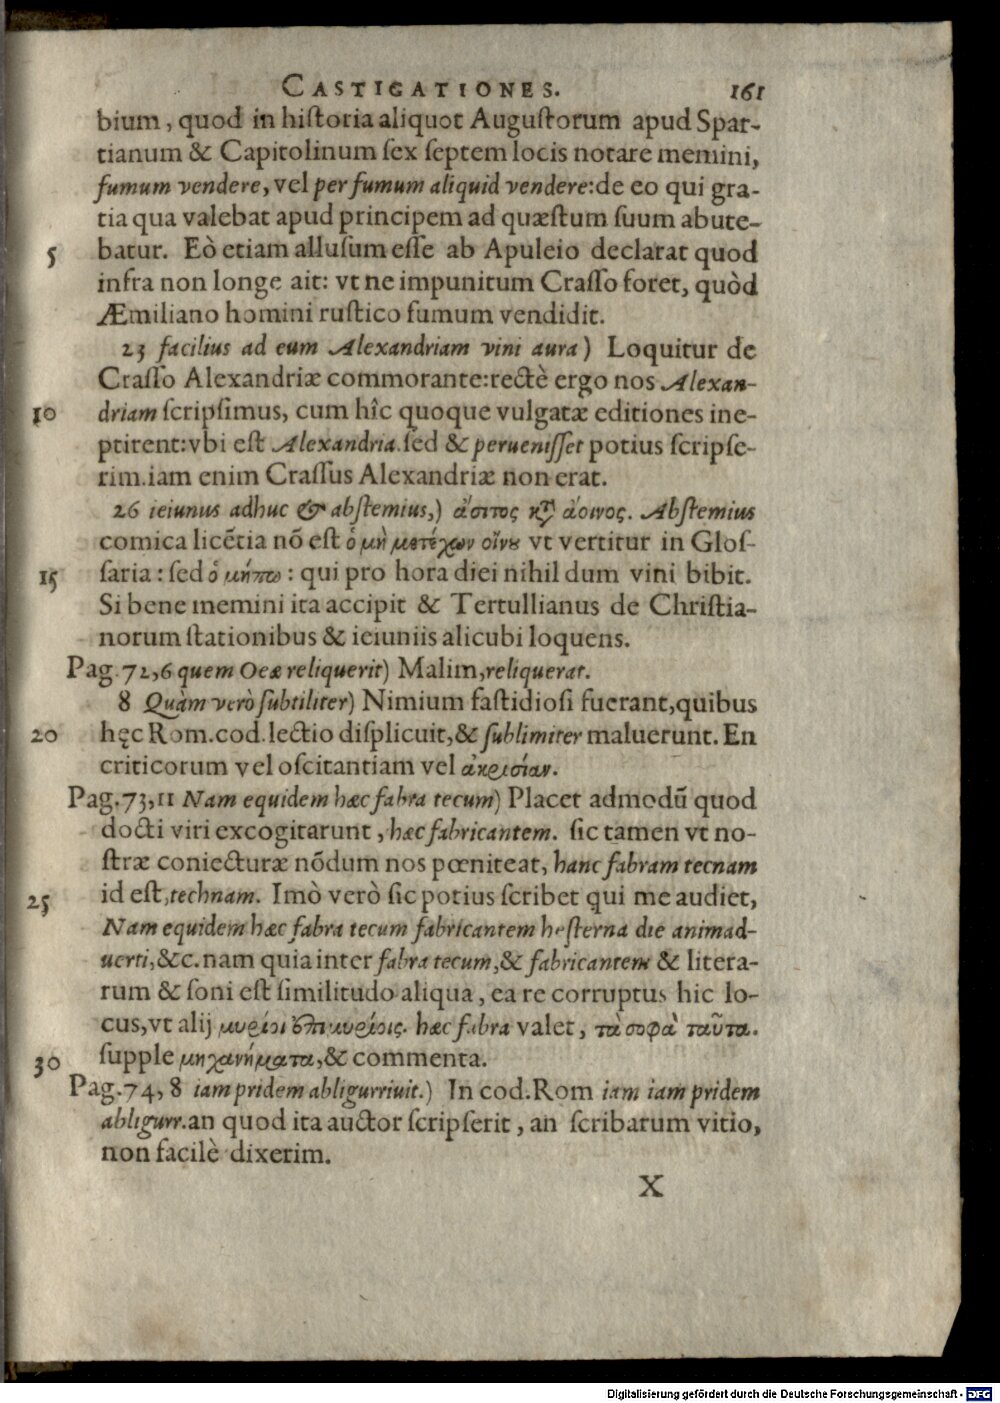 CASTIGATIONES. 161
bium, quod in hiſtoria aliquot Auguſtorum apud Spar-
tianum & Capitolinum ſex ſeptem locis notare memini,
fumum vendere, vel per fumum aliquid vendere: de eo qui gra-
tia qua valebat apud principem ad quæſtum ſuum abute-
5 batur. Eò etiam alluſum eſſe ab Apuleio declarat quod
infra non longe ait: vt ne impunitum Craſſo foret, quòd
Æmiliano homini ruſtico fumum vendidit.
23 facilius ad eum Alexandriam vini aura) Loquitur de
Craſſo Alexandriæ commorante: rectè ergo nos Alexan-
10 driam ſcripſimus, cum hîc quoque vulgatæ editiones ine-
ptirent: vbi eſt Alexandria. ſed & perueniſſet potius ſcripſe-
rim. iam enim Craſſus Alexandriæ non erat.
26 ieiunus adhuc & abſtemius,) ἄσιτος καὶ ἄοινος. Abſtemius
comica licētia nō eſt ὁ μὴ μετέχων οἴνου vt vertitur in Gloſ-
15 ſaria: ſed ὁ μήπω: qui pro hora diei nihil dum vini bibit.
Si bene memini ita accipit & Tertullianus de Chriſtia-
norum ſtationibus & ieiuniis alicubi loquens.
Pag. 72, 6 quem Oeæ reliquerit) Malim, reliquerat.
8 Quàm verò ſubtiliter) Nimium faſtidioſi fuerant, quibus
20 hęc Rom. cod. lectio diſplicuit, & ſublimiter maluerunt. En
criticorum vel oſcitantiam vel ἀκρισίαν.
Pag. 73, 11 Nam equidem hæc fabra tecum) Placet admodū quod
docti viri excogitarunt, hæc fabricantem. ſic tamen vt no-
ſtræ coniecturæ nōdum nos pœniteat, hanc fabram tecnam
25 id eſt, technam. Imò verò ſic potius ſcribet qui me audiet,
Nam equidem hæc fabra tecum fabricantem heſterna die animad-
uerti, &c. nam quia inter fabra tecum, & fabricantem & litera-
rum & ſoni eſt ſimilitudo aliqua, ea re corruptus hic lo-
cus, vt alij μυρίοι ἐπὶ μυρίοις. hæc fabra valet, τὰ σοφὰ ταῦτα.
30 ſupple μηχανήματα, & commenta.
Pag. 74, 8 iam pridem abligurriuit.) In cod. Rom iam iam pridem
abligurr. an quod ita auctor ſcripſerit, an ſcribarum vitio,
non facilè dixerim.
X
Digitalisierung gefördert durch die Deutsche Forschungsgemeinschaft - DFG